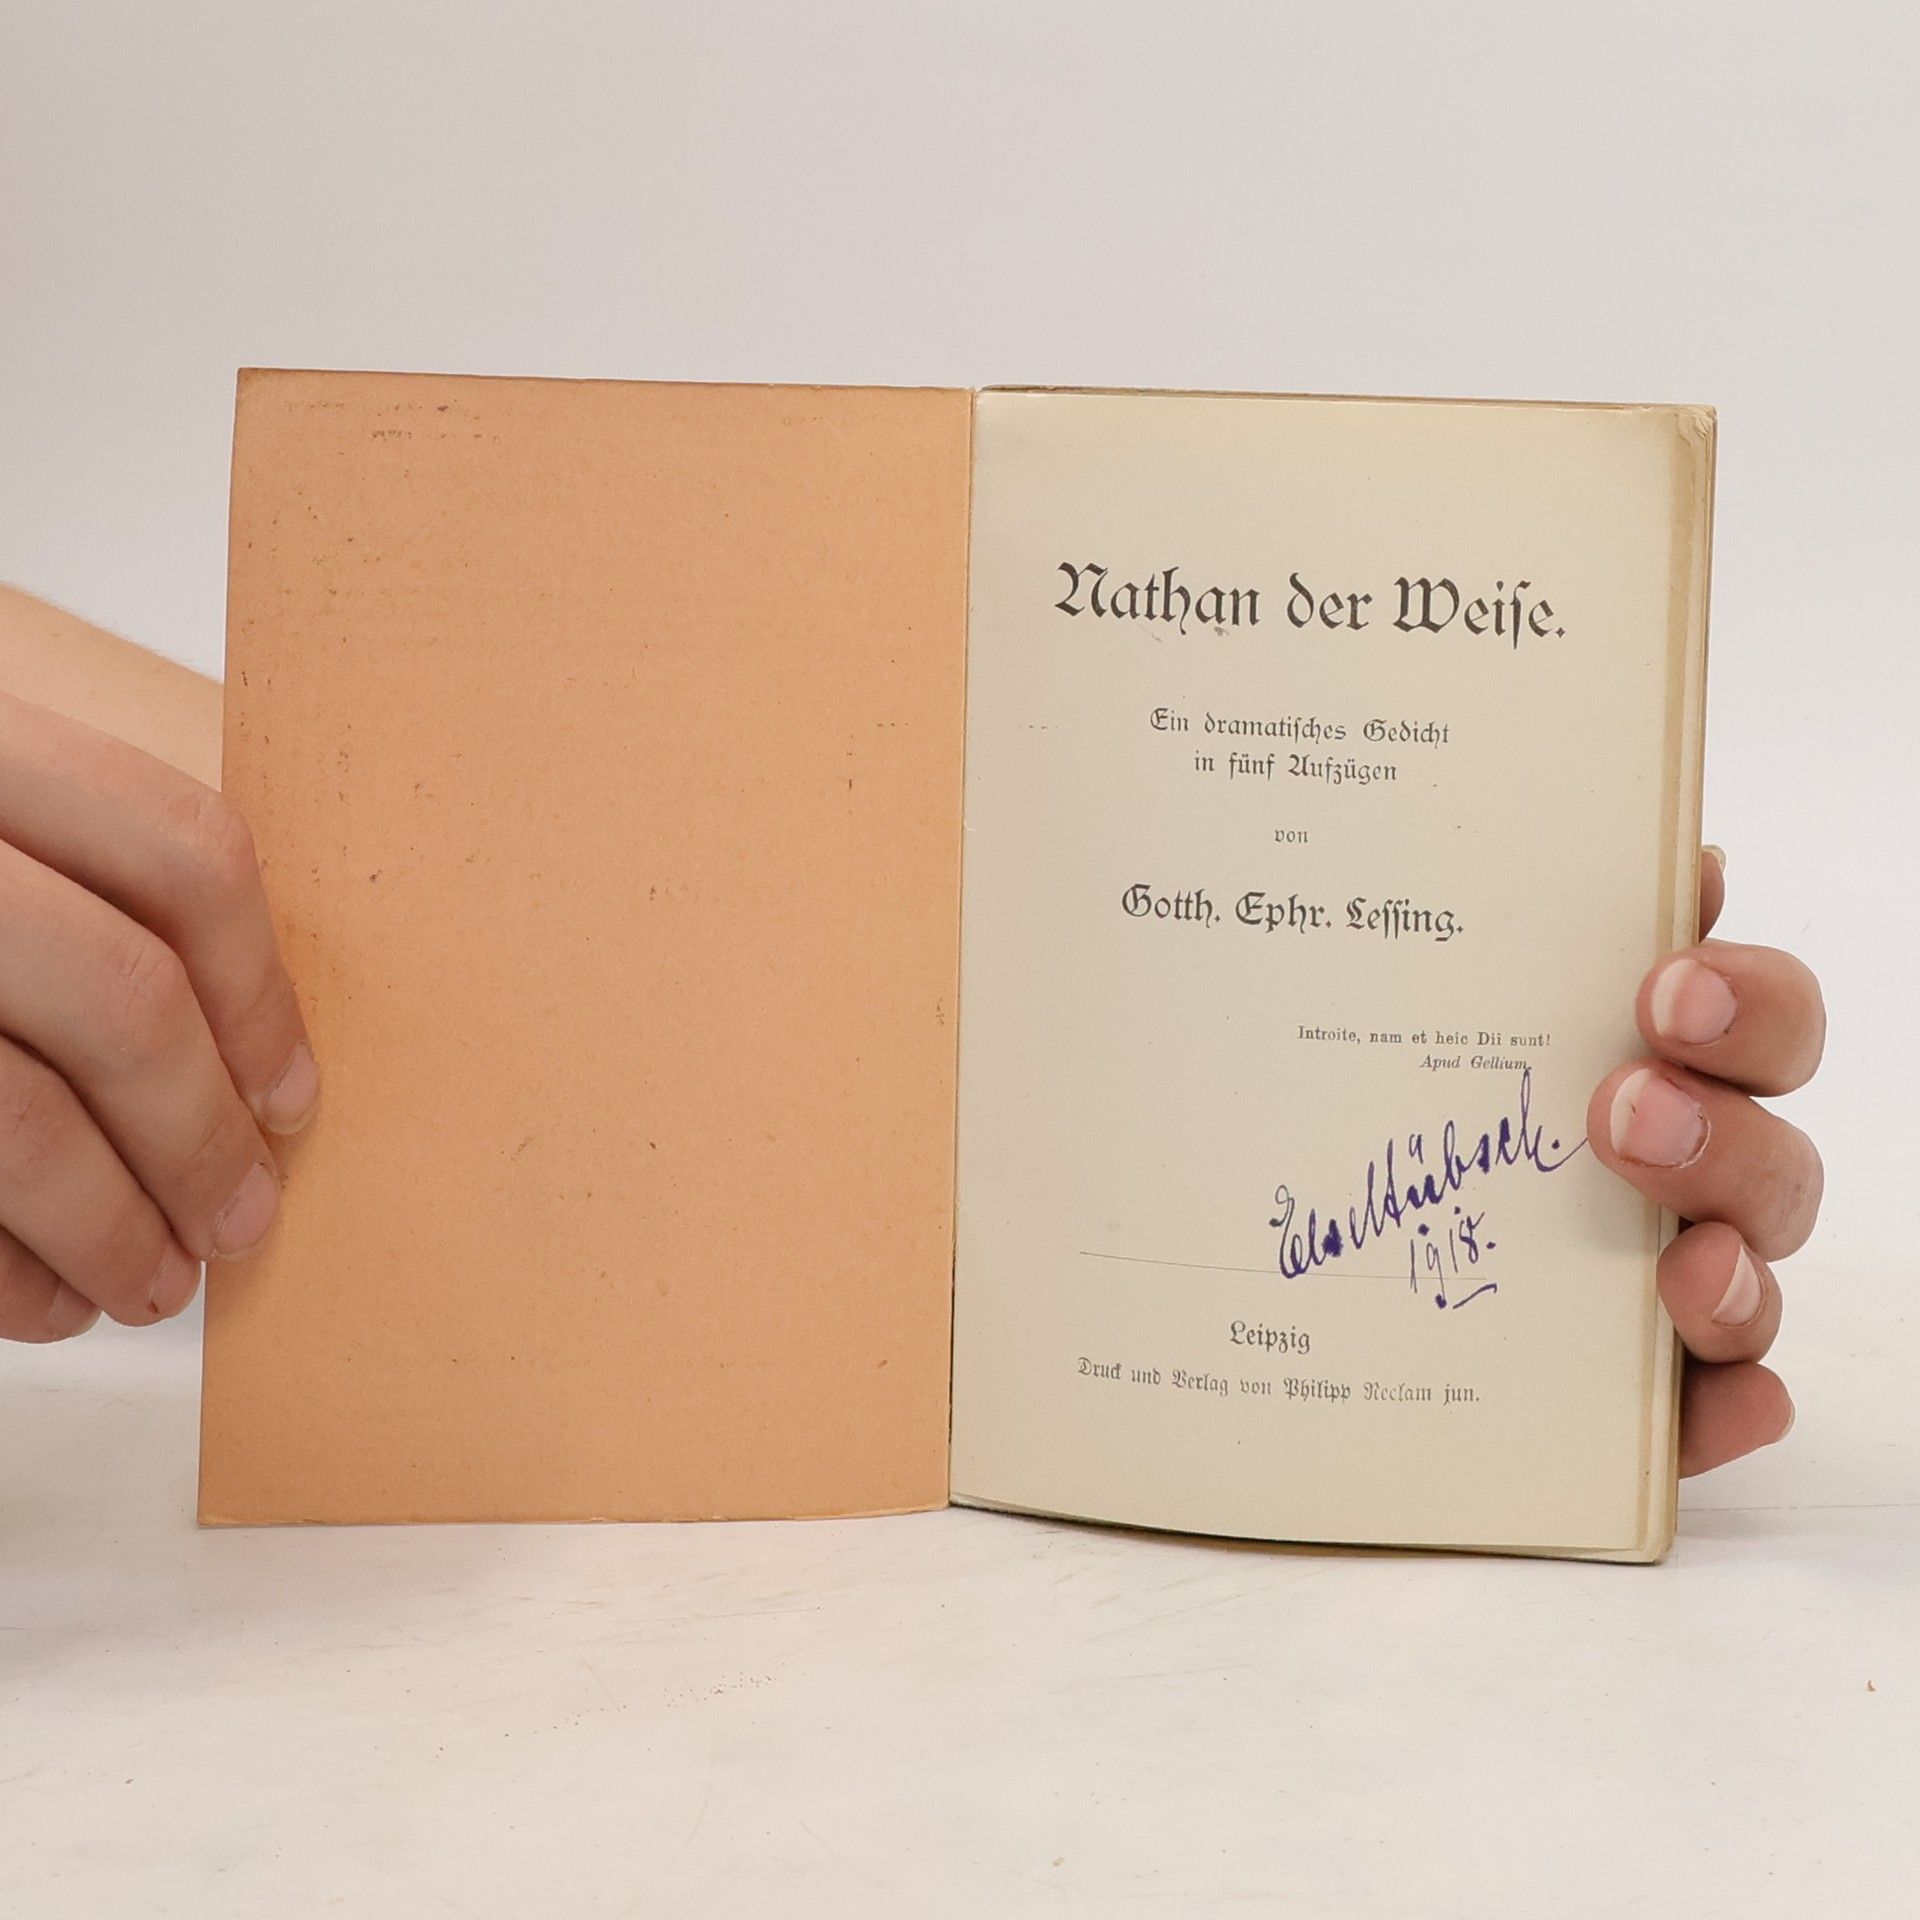 Nathan der Weise.
Ein dramatisches Gedicht
in fünf Aufzügen
von
Gotth. Ephr. Lessing.
Introite, nam et heic Dii sunt!
Apud Gellium.
1918.
Leipzig
Druck und Verlag von Philipp Reclam jun.